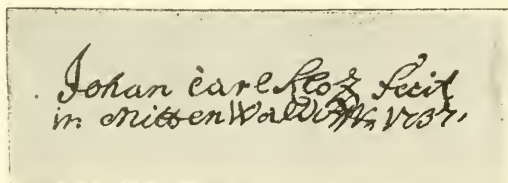 Johan Carl Kloz fecit
in MittenWald An 1737.